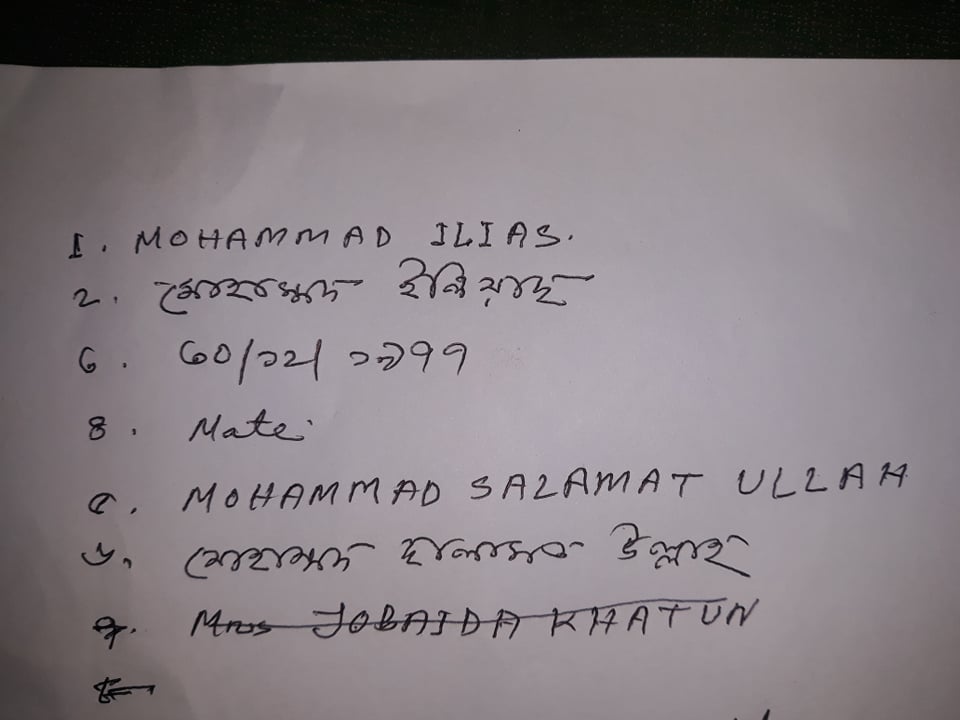 ১. MOHAMMAD ILIAS.
২. মোহাম্মদ ইলিয়াছ
৩. ৩০/১২/১৯৭৭
৪. Mate
৫. MOHAMMAD SALAMAT ULLAH
৬. মোহাম্মদ ছালামত উল্লাহ
৭. Mrs JOBAIDA KHATUN